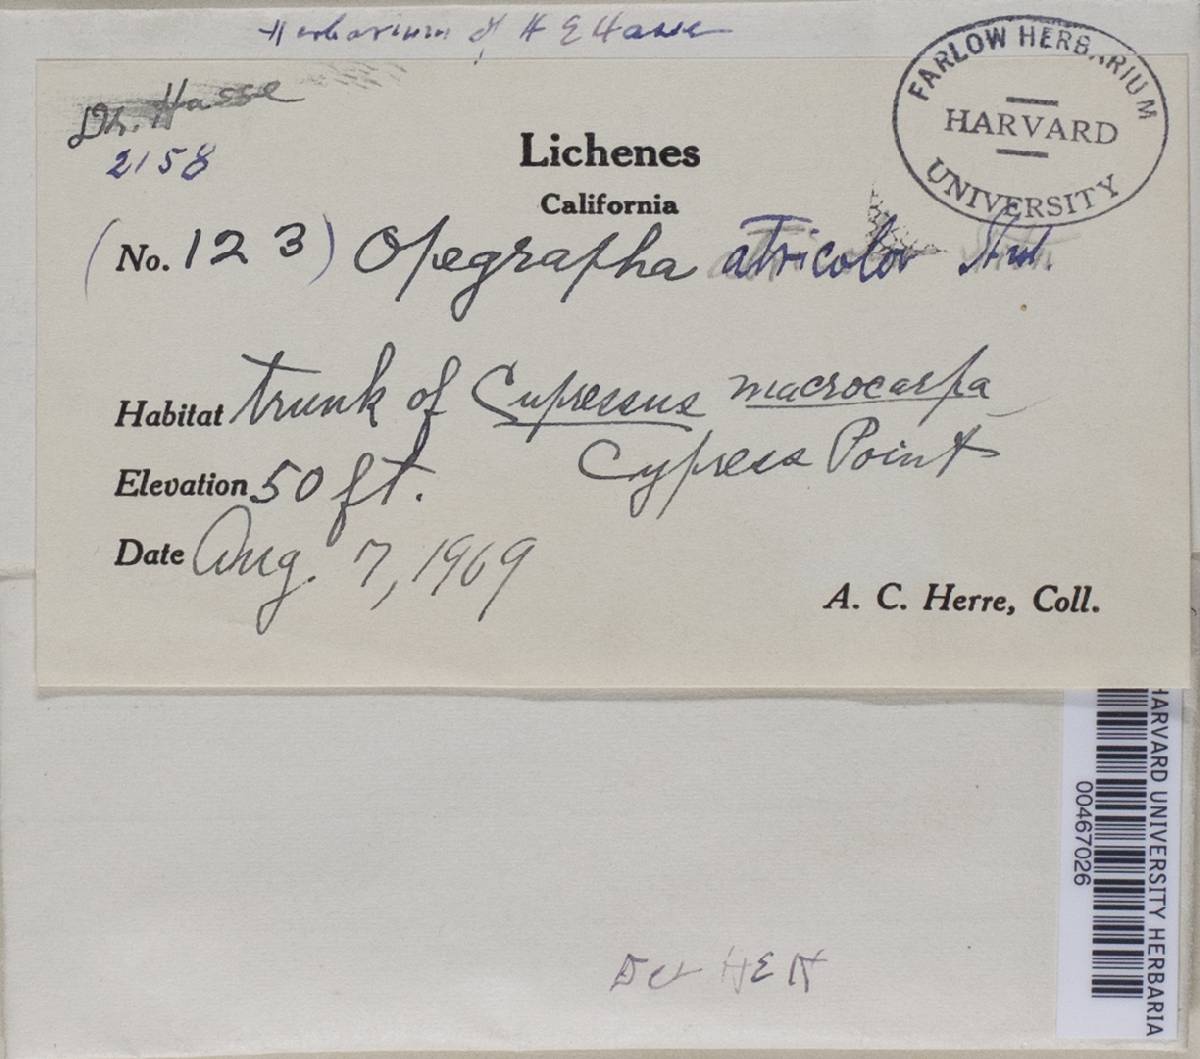 Herbarium of H E Hasse
FARLOW HERBARIUM
HARVARD
UNIVERSITY
Dr. Hasse
2158
Lichenes
California
(No. 123) Opegrapha atricolor
Habitat trunk of Cupressus macrocarpa
Cypress Point
Elevation 50 ft.
Date Aug. 7, 1909
A. C. Herre, Coll.
HARVARD UNIVERSITY HERBARIA
00467026
Det HEH